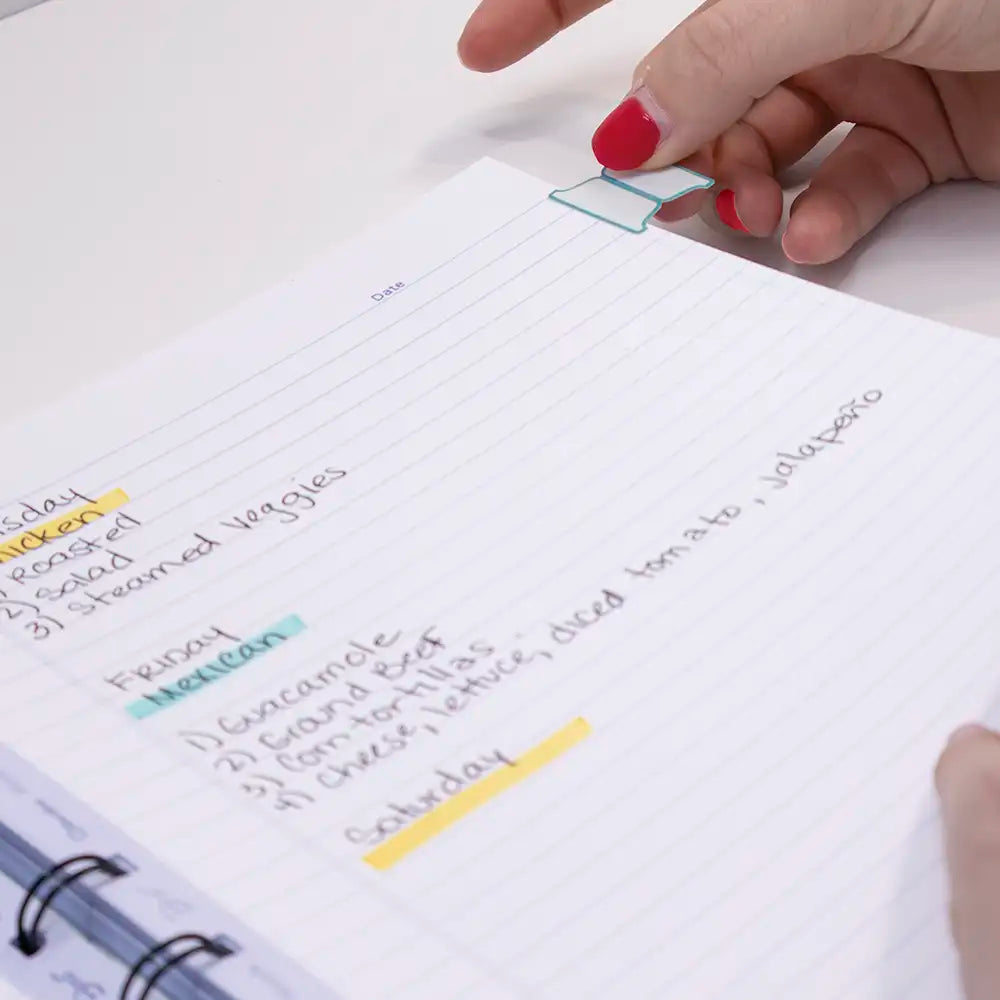 Date
sday
hicken
1) Roasted
2) Salad
3) Steamed Veggies
FRIDAY
Mexican
1) Guacamole
2) Ground Beef
3) Corn tortillas
4) Cheese, lettuce, diced tomato, Jalapeño
Saturday